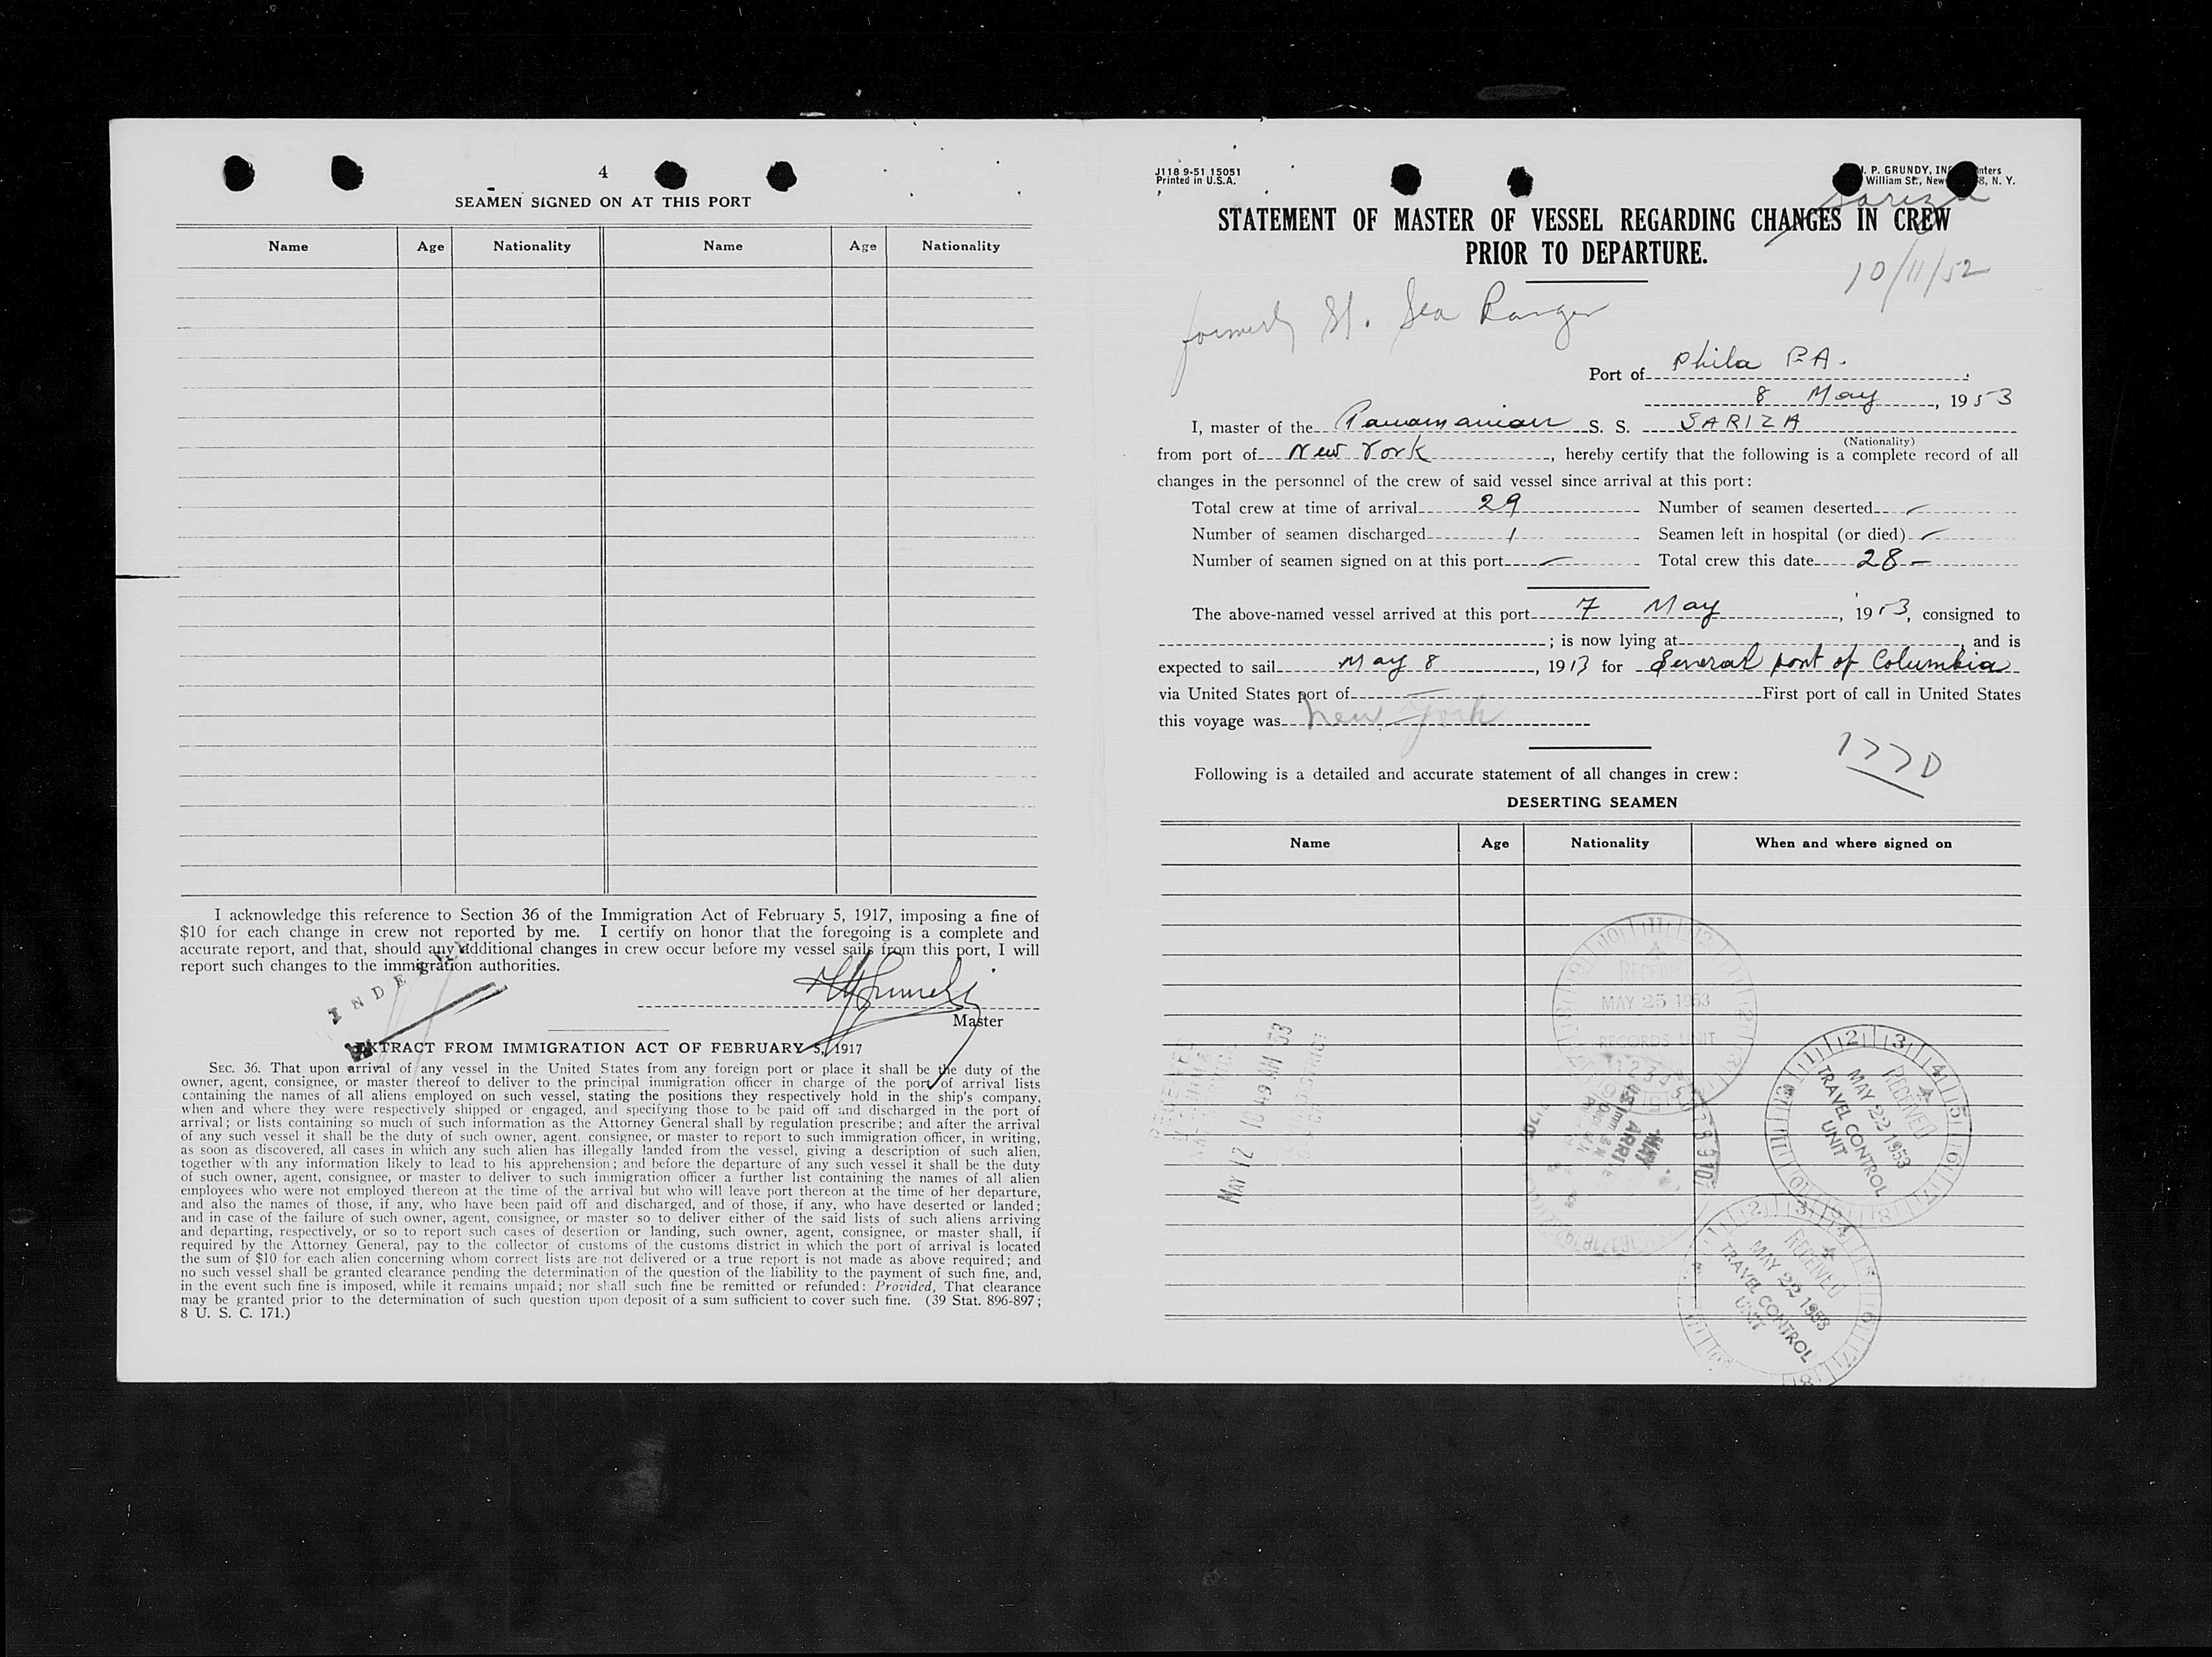 4
SEAMEN SIGNED ON AT THIS PORT
Name Age Nationality Name Age Nationality
I acknowledge this reference to Section 36 of the Immigration Act of February 5, 1917, imposing a fine of
$10 for each change in crew not reported by me. I certify on honor that the foregoing is a complete and
accurate report, and that, should any additional changes in crew occur before my vessel sails from this port, I will
report such changes to the immigration authorities.
Master
EXTRACT FROM IMMIGRATION ACT OF FEBRUARY 5, 1917
SEC. 36. That upon arrival of any vessel in the United States from any foreign port or place it shall be the duty of the
owner, agent, consignee, or master thereof to deliver to the principal immigration officer in charge of the port of arrival lists
containing the names of all aliens employed on such vessel, stating the positions they respectively hold in the ship's company,
when and where they were respectively shipped or engaged, and specifying those to be paid off and discharged in the port of
arrival; or lists containing so much of such information as the Attorney General shall by regulation prescribe; and after the arrival
of any such vessel it shall be the duty of such owner, agent. consignee, or master to report to such immigration officer, in writing,
as soon as discovered, all cases in which any such alien has illegally landed from the vessel, giving a description of such alien,
together with any information likely to lead to his apprehension; and before the departure of any such vessel it shall be the duty
of such owner, agent, consignee, or master to deliver to such immigration officer a further list containing the names of all alien
employees who were not employed thereon at the time of the arrival but who will leave port thereon at the time of her departure,
and also the names of those, if any, who have been paid off and discharged, and of those, if any, who have deserted or landed;
and in case of the failure of such owner, agent, consignee, or master so to deliver either of the said lists of such aliens arriving
and departing, respectively, or so to report such cases of desertion or landing, such owner, agent, consignee, or master shall, if
required by the Attorney General, pay to the collector of customs of the customs district in which the port of arrival is located
the sum of $10 for each alien concerning whom correct lists are not delivered or a true report is not made as above required; and
no such vessel shall be granted clearance pending the determination of the question of the liability to the payment of such fine, and,
in the event such fine is imposed, while it remains unpaid; nor shall such fine be remitted or refunded: Provided, That clearance
may be granted prior to the determination of such question upon deposit of a sum sufficient to cover such fine. (39 Stat. 896-897;
8 U. S. C. 171.)
J118 9-51 15051
Printed in U.S.A.
P. GRUNDY,
William St., New N. Y.
Sariza
STATEMENT OF MASTER OF VESSEL REGARDING CHANGES IN CREW
PRIOR TO DEPARTURE.
10/11/52
formerly St. Sea Ranger
Port of Phila PA.
8 May, 1953
I, master of the Panamanian S. S. SARIZA
(Nationality)
from port of New York, hereby certify that the following is a complete record of all
changes in the personnel of the crew of said vessel since arrival at this port:
Total crew at time of arrival 29 Number of seamen deserted —
Number of seamen discharged 1 Seamen left in hospital (or died) —
Number of seamen signed on at this port — Total crew this date 28 —
The above-named vessel arrived at this port 7 May, 1953, consigned to
; is now lying at , and is
expected to sail May 8, 1953 for General port of Columbia
via United States port of — First port of call in United States
this voyage was New York
Following is a detailed and accurate statement of all changes in crew:
DESERTING SEAMEN
Name Age Nationality When and where signed on
RECEIVED
MAY 25 1953
RECORDS UNIT
MAY 12 10 49 AM 53
RECEIVED
MAY 22 1953
TRAVEL CONTROL
UNIT
RECEIVED
MAY 22 1953
TRAVEL CONTROL
UNIT